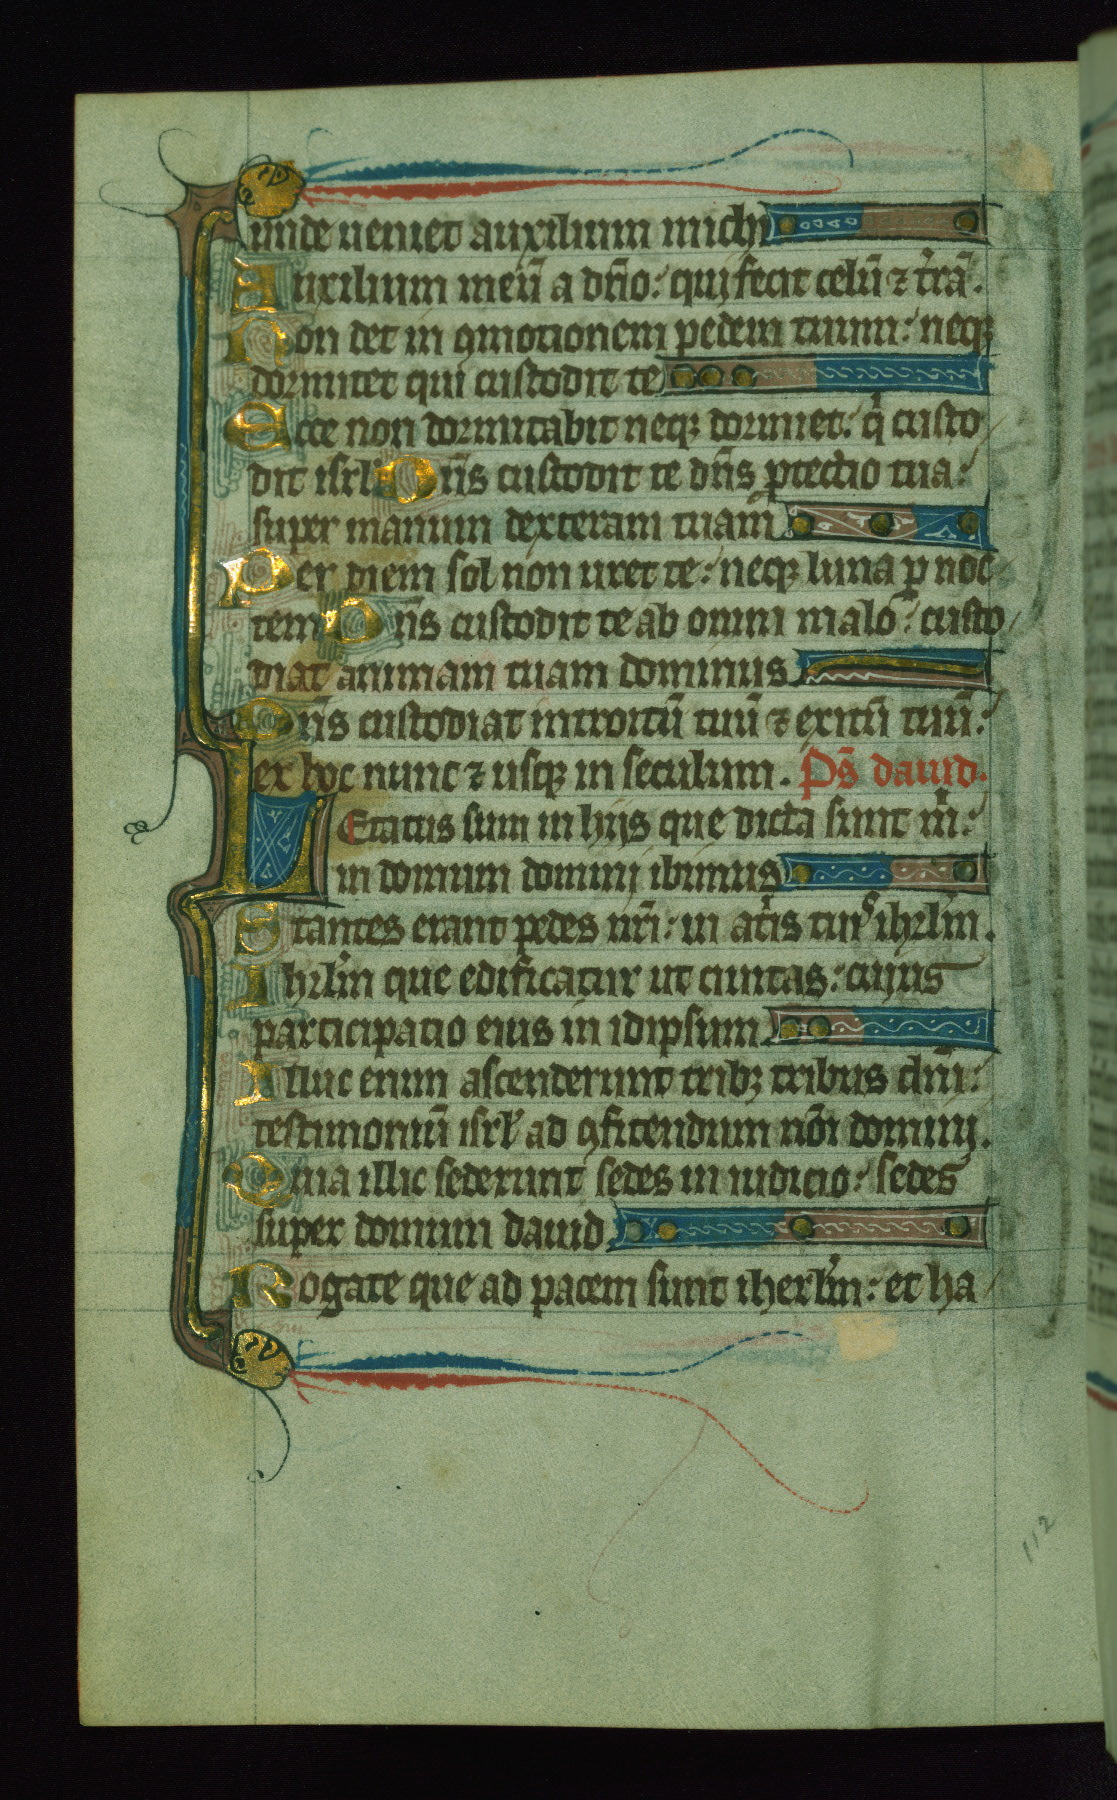 unde ueniet auxilium michi
Auxilium meū a dn̄o: qui fecit celū ⁊ t̄rā.
Non det in ꝯmotionem pedem tuum: neqꝫ
dormitet qui custodit te
Ecce non dormitabit neqꝫ dormiet: qͥ custo
dit isrl̄. Dn̄s custodit te dn̄s ꝓtectio tua:
super manum dexteram tuam
Per diem sol non uret te: neqꝫ luna ꝑ noc
tem Dn̄s custodit te ab omni malo: custo
diat animam tuam dominus
Dn̄s custodiat introitū tuū ⁊ exitū tuū:
ex hoc nunc ⁊ usqꝫ in seculum. Ps̄ dauid.
LEtatus sum in hijs que dicta sunt mͥ:
in domum domini ibimus
Stantes erant pedes nr̄i: in at̄is tuis ihrlm̄.
Ihrlm̄ que edificatur ut ciuitas: cuius
participatio eius in idipsum
Illuc enim ascenderunt tribꝫ tribus dn̄i:
testimoniū isrl̄ ad ꝯfitendum nōi domini.
Quia illic sederunt sedes in iudicio: sedes
super domum dauid
Rogate que ad pacem sunt iherlm̄: et ha
112